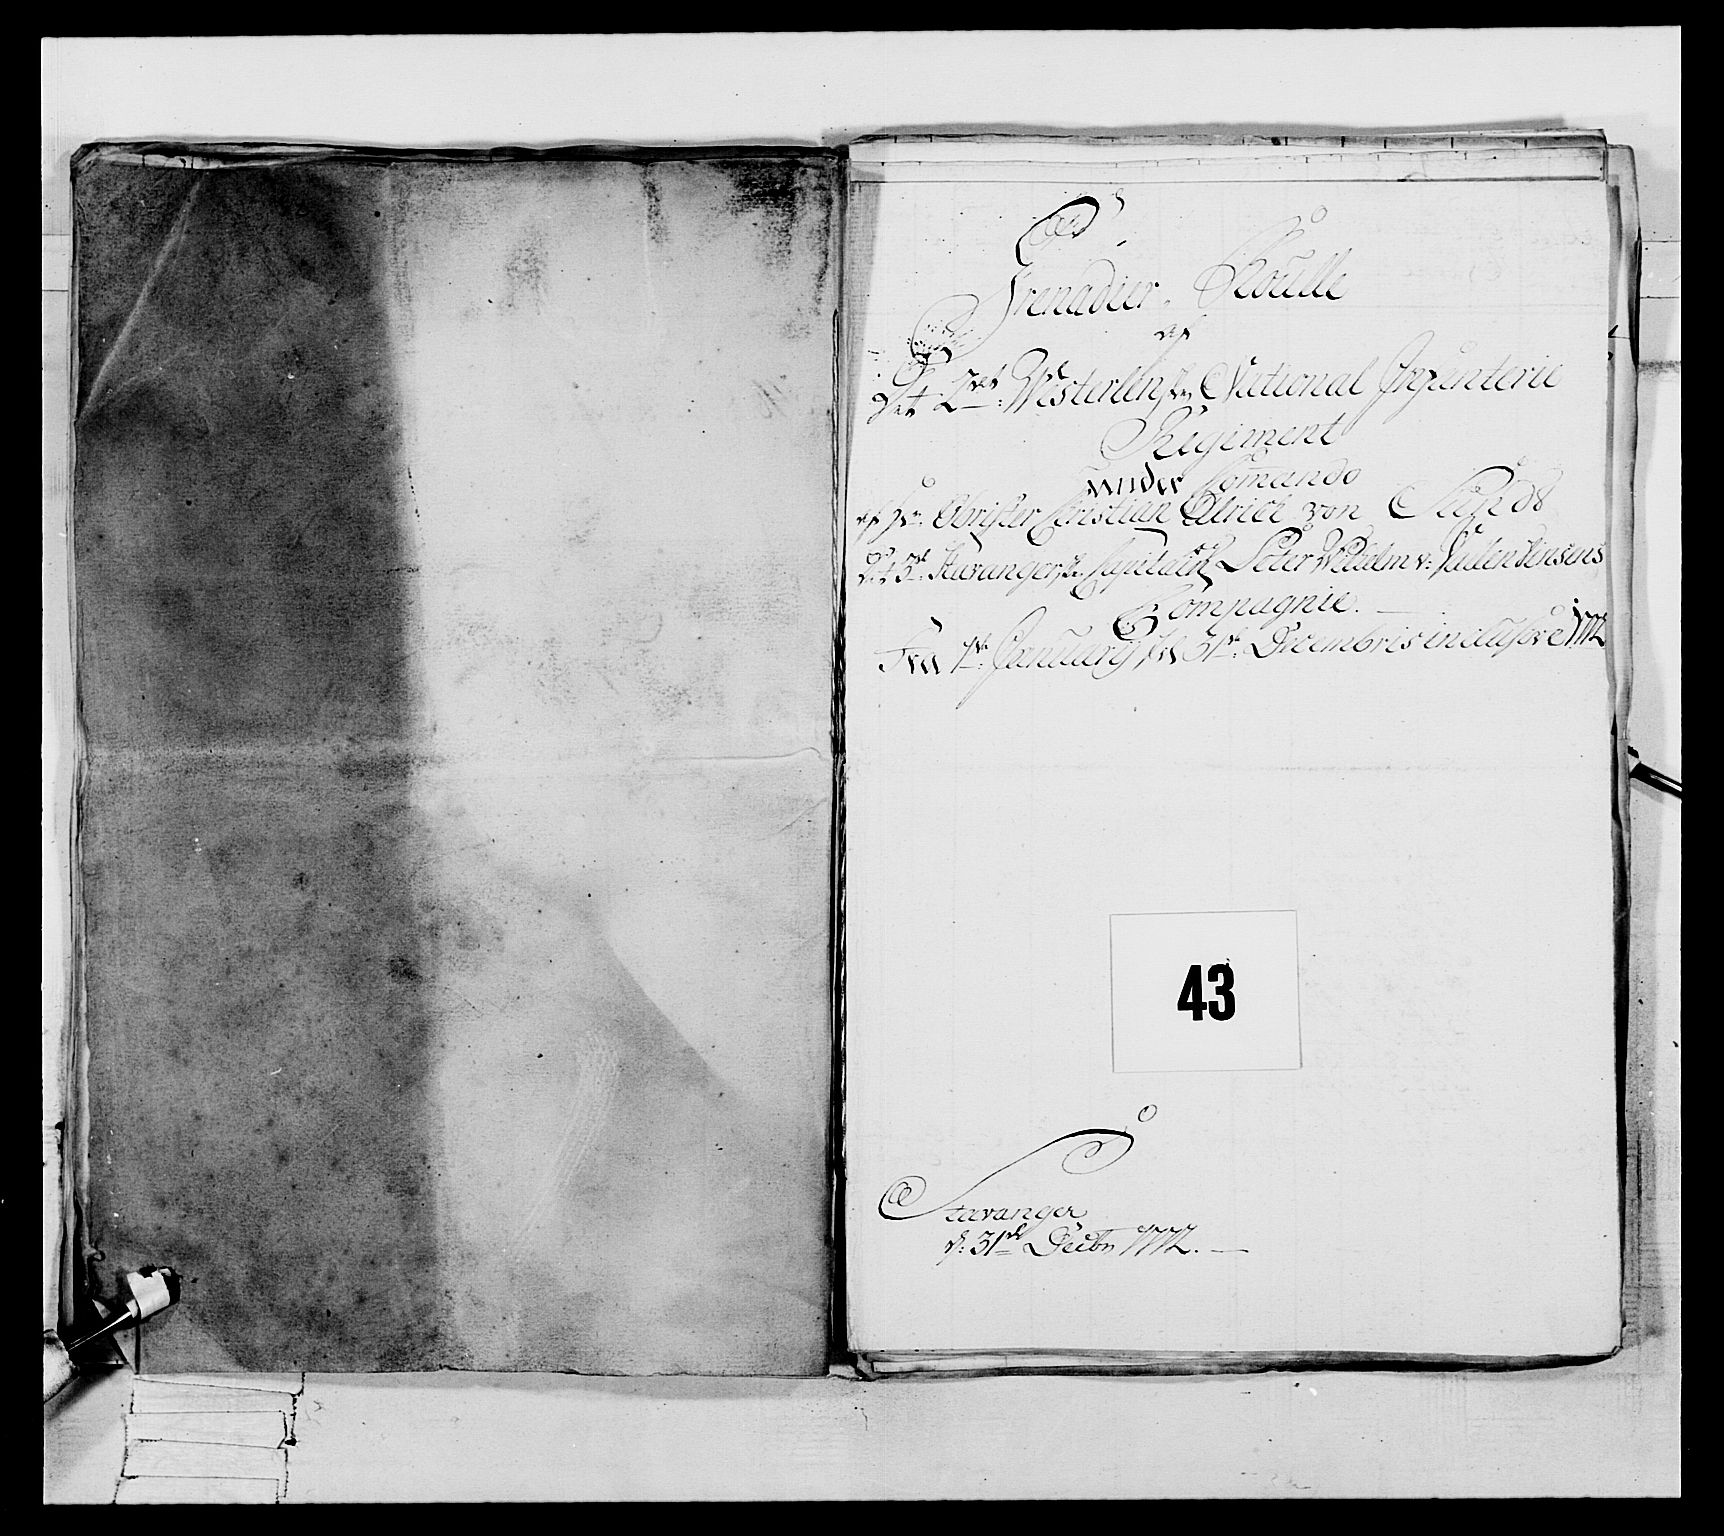 Grenadier-Roulle
af
Det 2det Westerlenske National Infanterie
Regiment
under Comando
af Hr: Obrister Cristian Ulrich von
Det 3de Stavangerske Capitain Peter Wilhelm v:
Compagnie.
Fra 1te January til 31te Decembris inclusive 1772
43
Stavanger
d: 31te Decbr 1772.